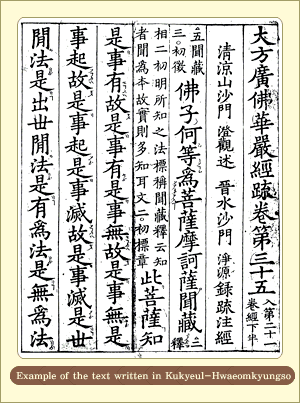 大方廣佛華嚴經疏卷第三十五 入第二十一卷經下半
清涼山沙門 澄觀述 晉水沙門 淨源録疏注經
五聞藏三○初徵 佛子何等爲菩薩摩訶薩聞藏 二釋
相二初明所知之法標稱聞藏釋云知
者聞爲本故實則多知耳文二○初標章 此菩薩知
是事有故是事有是事無故是事無是
事起故是事起是事滅故是事滅是世
閒法是出世閒法是有爲法是無爲法
Example of the text written in Kukyeul-Hwaeomkyungso